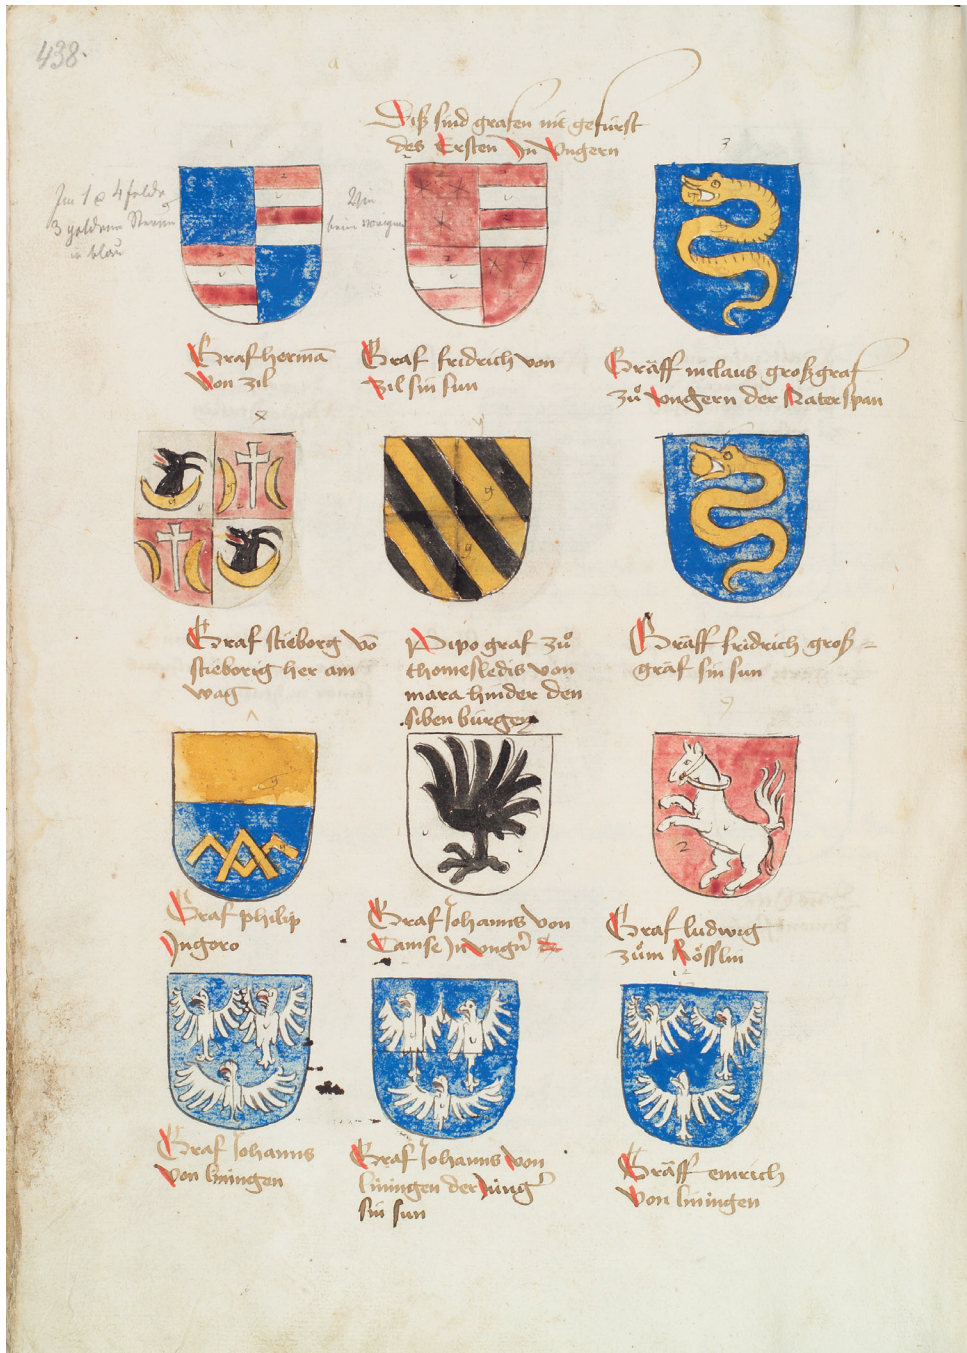 438.
Diß sind grafen nit gefürst
des Ersten Jn Vngern
3
Jm 1 & 4 felde
3 goldene Sterne
in blau
Graf hermā
Von zil
Graf fridrich von
zil sin sun
Gräff niclaus großgraf
zuͦ vngern der Naterspan
Graf stieborg vō
stieborig her am
wag
Pipo graf zuͦ
thomesledis von
mara hinder den
siben bürgen
Gräff fridrich groß=
gräf sin sun
Graf philip
Jngoro
Graf Johanns von
Camse Jn vngn̄
Graf ludwig
zuͦm Rösslin
Graf Johanns
von liningen
Graf Johanns von
liningen der Jüng
sin sun
Gräff emrich
von liningen